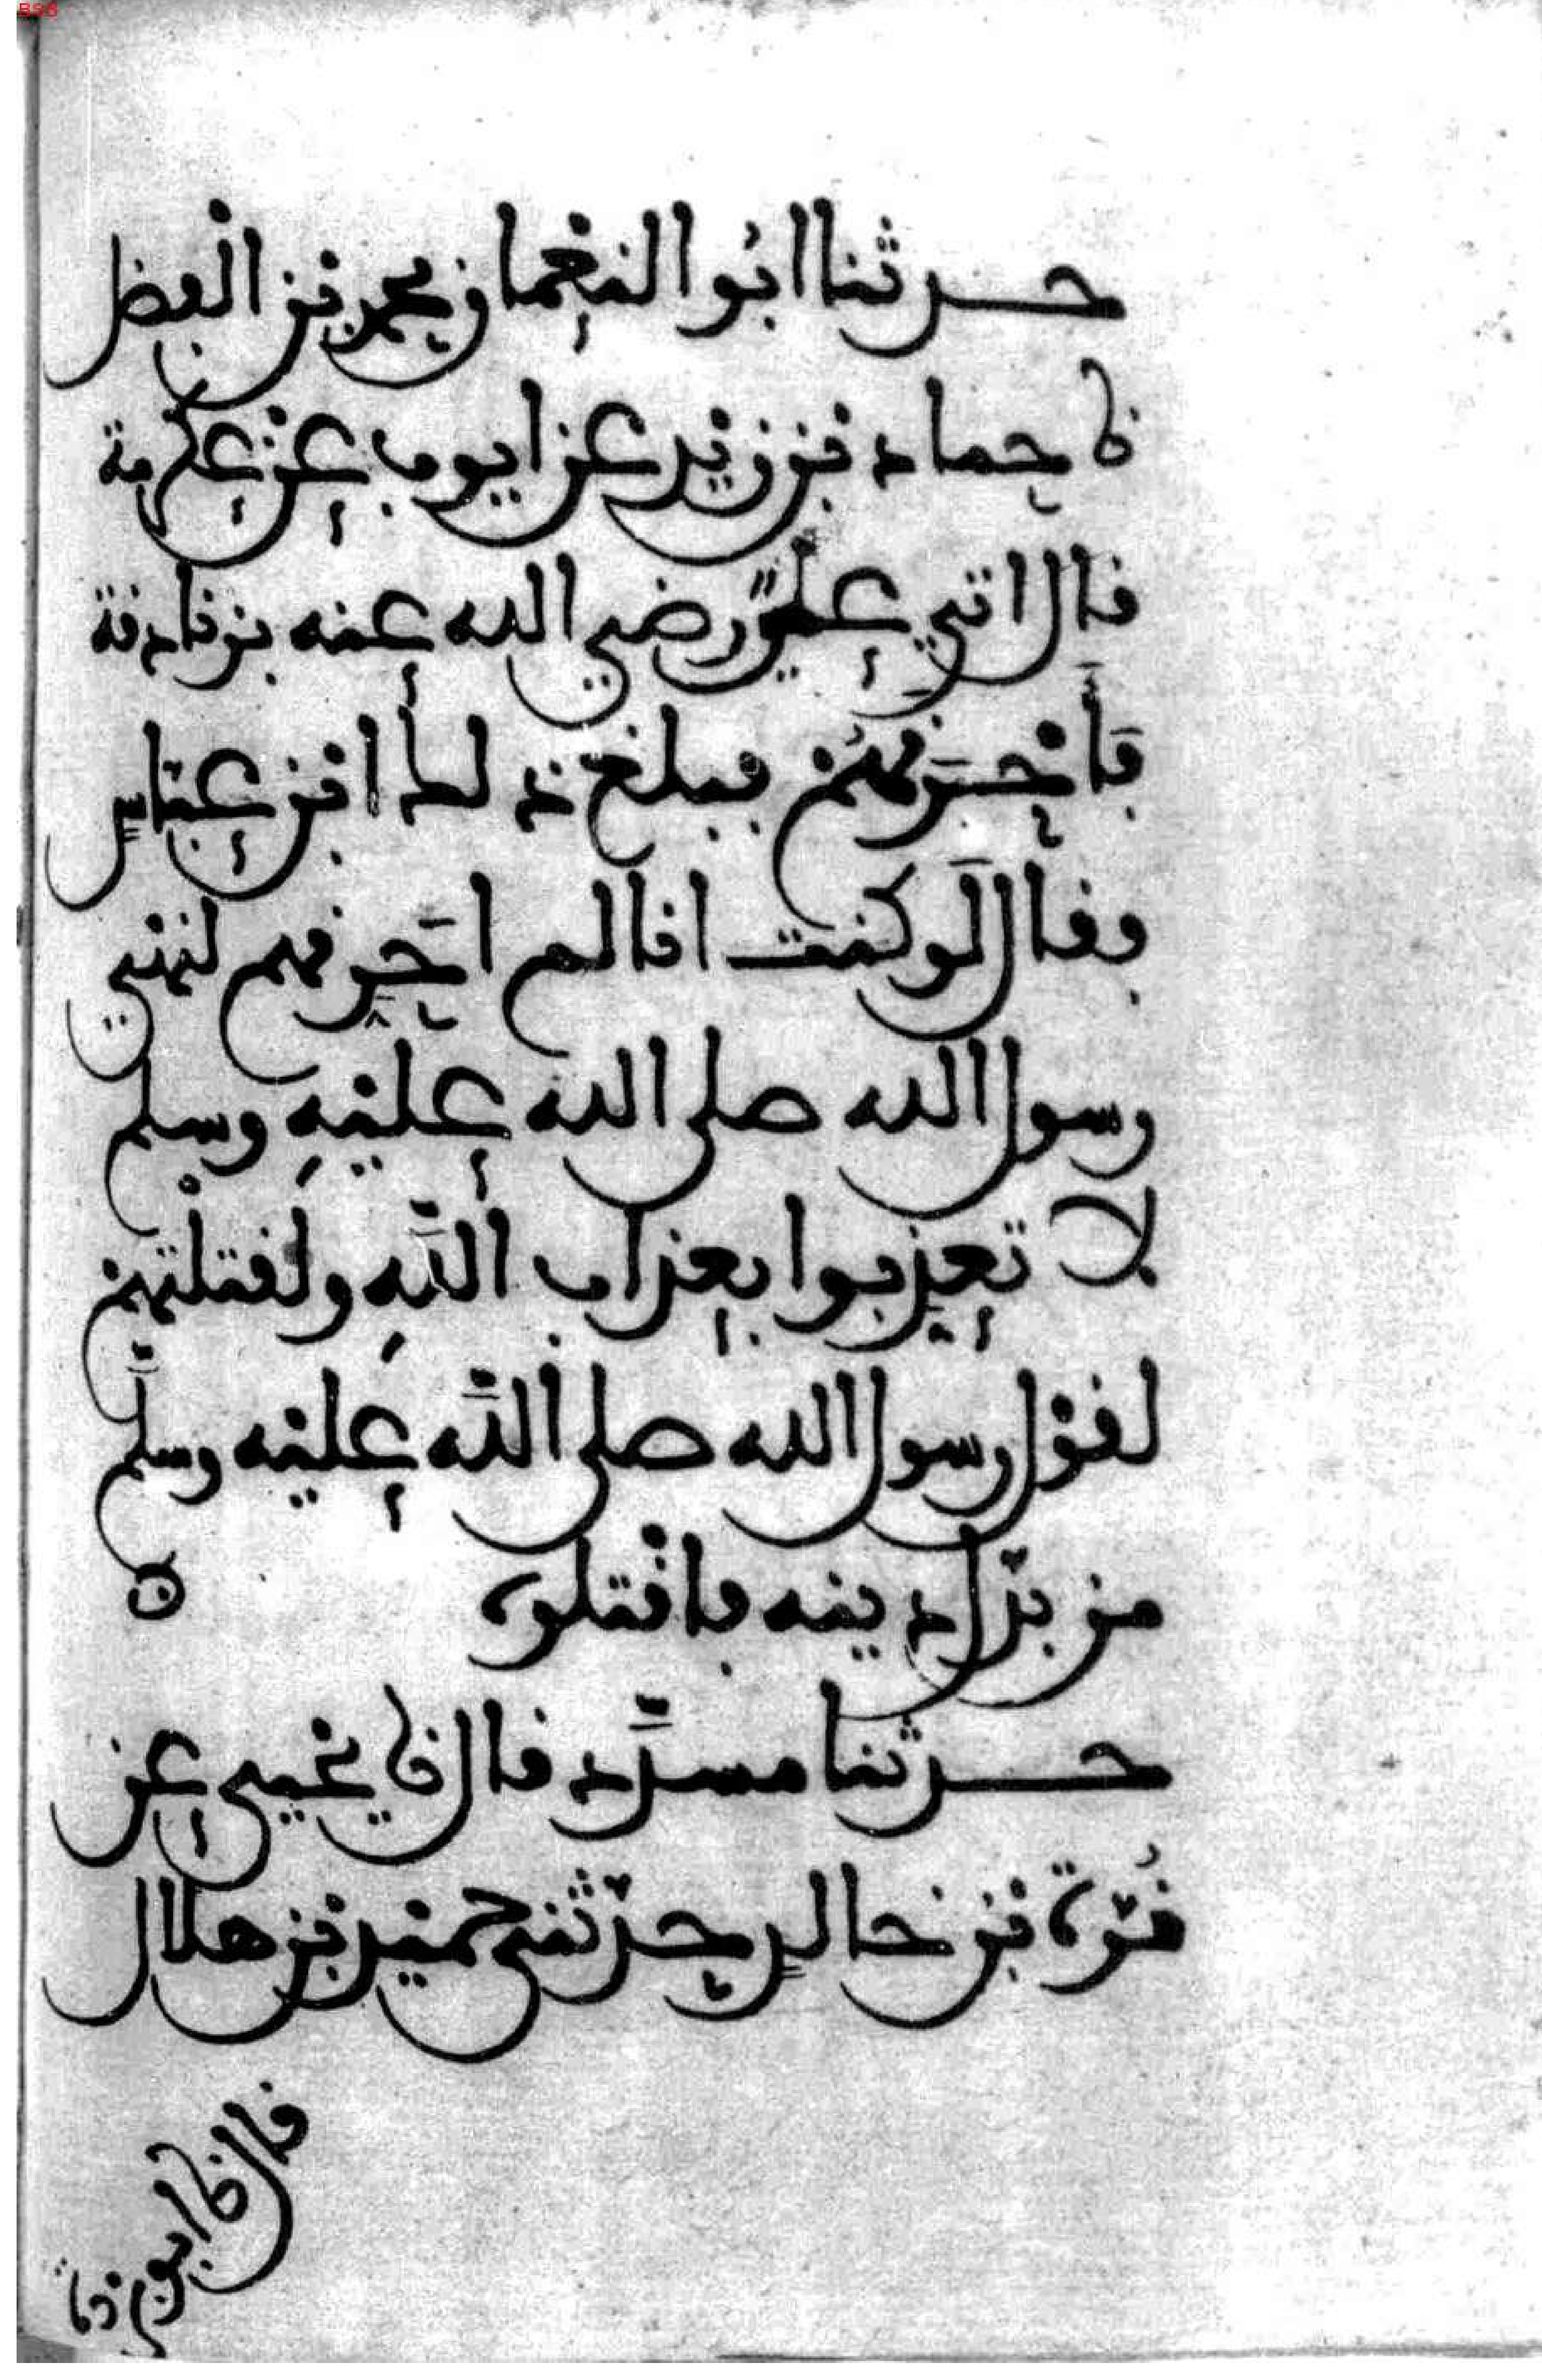 حدثنا ابو النعمان محمد بن الفضل
نا حماد بن زيد عن ايوب عن عكرمة
قال اتي علي رضي الله عنه بزنادقة
فأحرقهم فبلغ ذلك ابن عباسٍ
فقال لو كنت انا لم احرقهم لنهي
رسول الله صلى الله عليه وسلم
لا تعذبوا بعذاب الله ولقتلتهم
لقول رسول الله صلى الله عليه وسلم
من بدل دينه فاقتلوه
حدثنا مسدد قال نا يحيى عن
قرة بن خالدٍ حدثني حميد بن هلال
قال نا ابو بردة